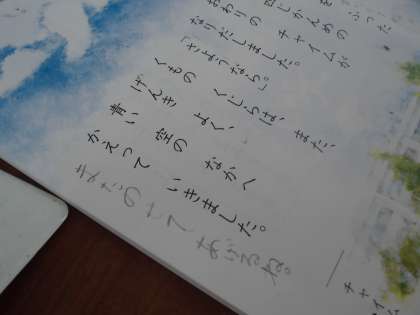 ふった
じかんめの
おわりの チャイムが
なりだしました。
「さようなら。」
くもの くじらは、また、
げんき よく、
青い 空の なかへ
かえって いきました。
チャイム